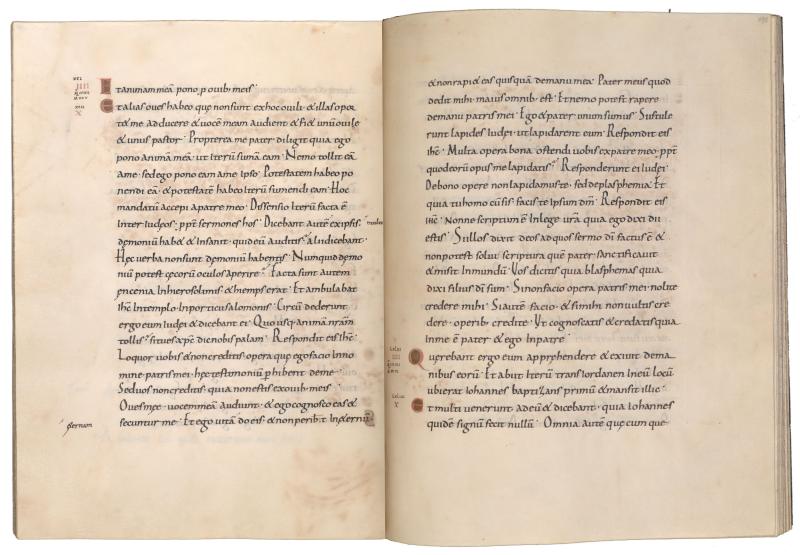 Et animam meā pono, p ouib; meis
Et alias oues habeo quę non sunt ex hoc ouili · & illas opor
t& me adducere & uocē meam audient · & fi& unū ouile
& unus pastor · Propterea me pater diligit quia ego
pono animā mea · ut Iterū sumā eam · Nemo tollit eā
Ame · sed ego pono eam Ame Ipso · Potestatem habeo po
nendi eā · & potestatē habeo Iterū sumendi eam · Hoc
mandatū accepi a patre meo · Dissensio Iterū facta ē
Inter Iudeos · ppt̄ sermones hos · Dicebant Autē ex ipsis ·
demoniū hab& & Insanit · quid eū auditis · alii dicebant ·
Hęc uerba non sunt demoniū habentis · Numquid demo
niū potest cęcorū oculos aperire · Facta sunt autem
encenia In hierosolimis & hiemps erat · Et ambulabat
ihc̄ In templo · In porticu salomonis · Circū dederunt
ergo eum Iudei & dicebant ei · Quo usq; animā nr̄am
tollis · si tu es xp̄c dic nobis palam · Respondit eis ihc̄ ·
Loquor uobis & non creditis · opera que ego facio In no
mine patris mei · hęc testimoniū phibent de me ·
Sed uos non creditis · quia non estis ex ouib; meis ·
Oues meę · uocem meam audiunt · & ego cognosco eas &
secuntur me · Et ego uitā do eis & non perib't In &ernū
&ernum
& non rapi& eas quisquā de manu mea · Pater meus quod
dedit mihi · maius omnib; est · Et nemo potest rapere
de manu patris mei · Ego & pater unum sumus · Sustule
runt lapides Iudei · ut lapidarent eum · Respondit eis
ihc̄ · Multa opera bona ostendi uobis ex patre meo · ppt̄
quod eorū opus me lapidatis · Responderunt ei Iudei ·
De bono opere non lapidamus te · sed de blasphemia · Et
quia tu homo cū sis · facis te Ipsum dm̄ · Respondit eis
ihc̄ · Nonne scriptum ē In lege ur̄a · quia ego dixi dii
estis · Si illos dixit deos ad quos sermo dī factus ē &
non potest solui scriptura quē pater sanctificauit
& misit In mundū · Vos dicitis quia blasphemas quia
dixi filius dī sum · Si non facio opera patris mei · nolite
credere mihi · Si autē facio · & si mihi non uultis cre
dere · operib; credite · Vt cognoscatis & credatis quia
In me ē pater & ego In patre
Querebant ergo eum apprehendere & exiuit de ma
nibus eorū · Et abiit Iterū trans Iordanen In eū Locū
ubi erat Iohannes baptizans primū & mansit illic ·
Et multi uenerunt ad eū & dicebant · quia Iohannes
quidē signū fecit nullū · Omnia autē quę cum que